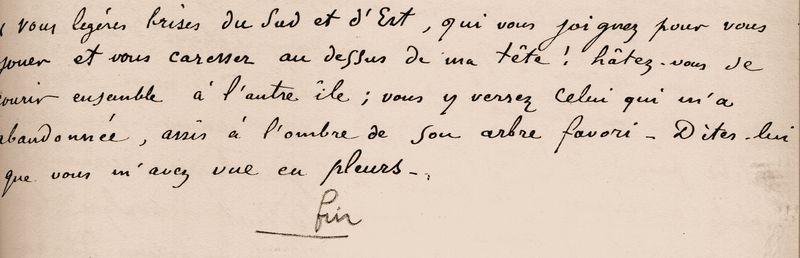 vous legères brises du Sud et d'Est, qui vous joignez pour vous
jouer et vous caresser au dessus de ma tête! hâtez-vous de
courir ensemble à l'autre île; vous y verrez Celui qui m'a
abandonnée, assis à l'ombre de son arbre favori - Dites-lui
que vous m'avez vue en pleurs -
fin